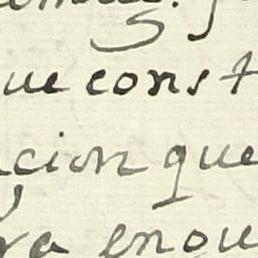 ue const
cion que
ra enou